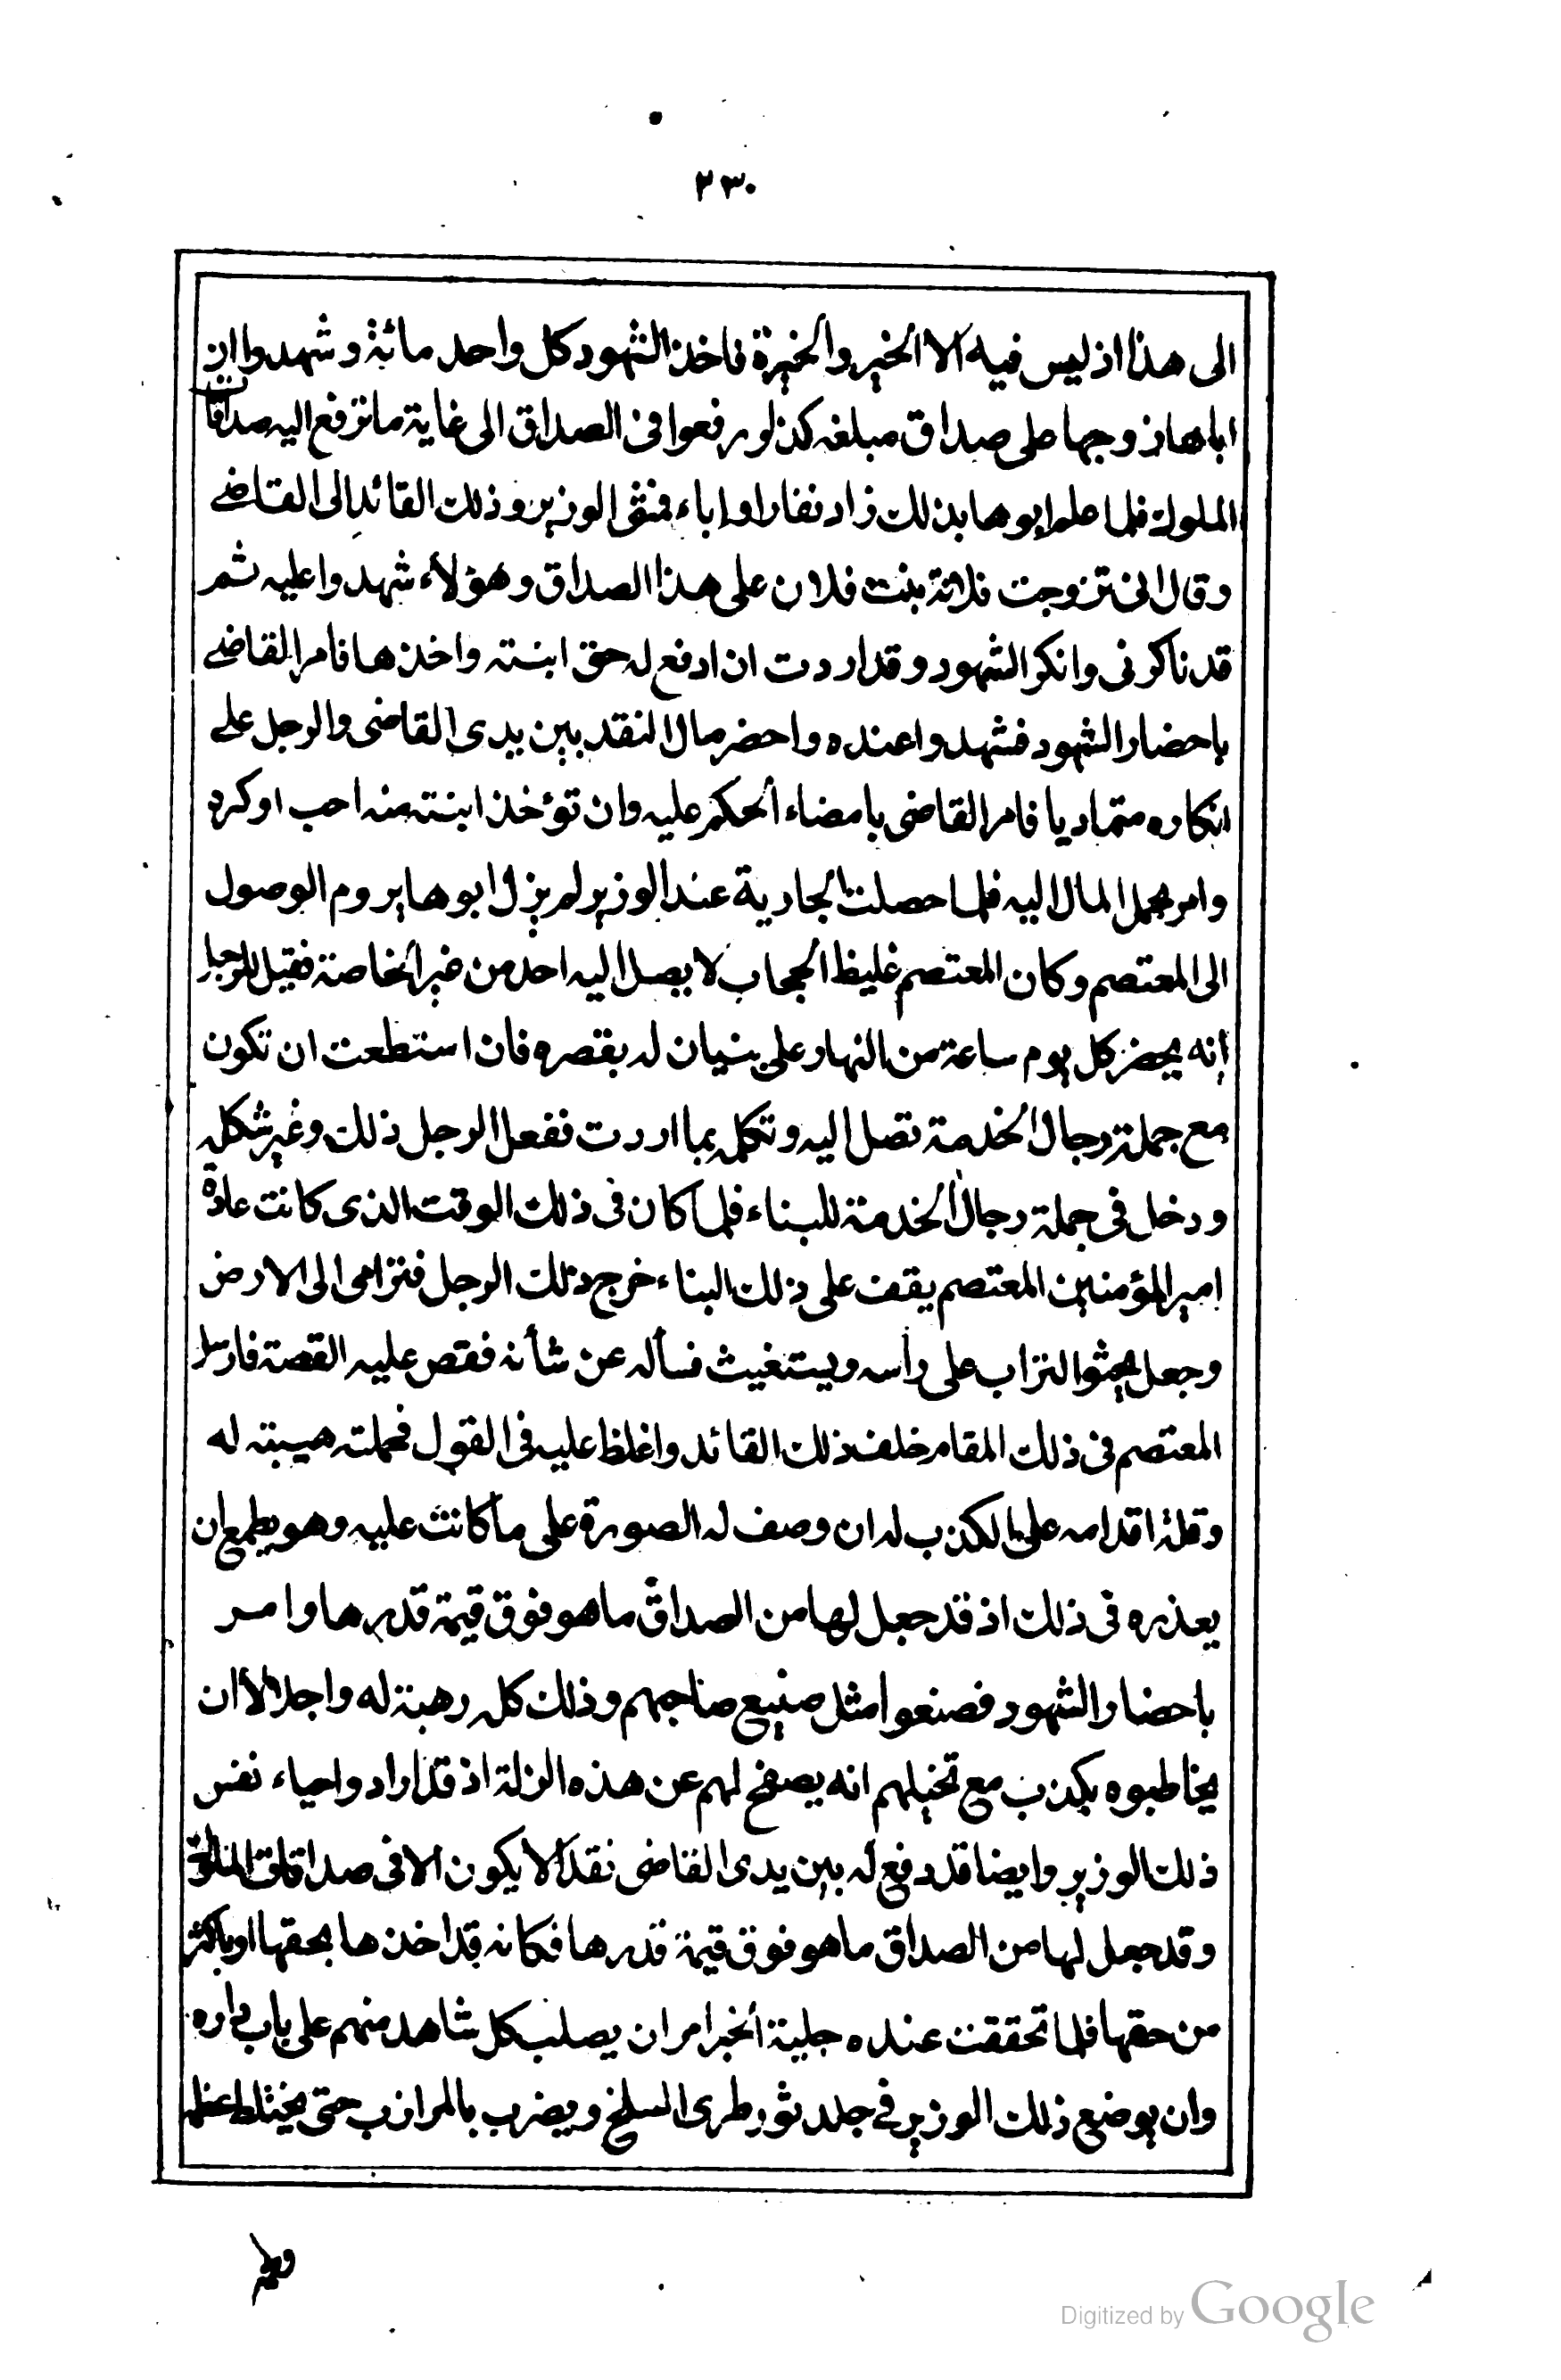 ٢٣٠
الى هذا اذ ليس فيه الا الخير والخيرة فاخذ الشهود كل واحد مائة وشهدوا ان
اباها زوجها على صداق مبلغه كذا ورفعوا فى الصداق الى غاية ما ترفع اليه صداقات
الملوك فلما علم ابوها بذلك زاد نفارا واباء فمشى الوزير وذلك القائد الى القاضى
وقال انى تزوجت فلانة بنت فلان على هذا الصداق وهؤلاء شهدوا عليه ثم
قد ناكرنى وانكر الشهود وقد اردت ان ادفع له حق ابنته واخذها فامر القاضى
باحضار الشهود فشهدوا عنده واحضر مال النقد بين يدى القاضى والرجل على
انكاره متماديا فامر القاضى بامضاء الحكم عليه وان تؤخذ ابنته منه احب او كره
وامر بحمل المال اليه فلما حصلت الجارية عند الوزير لم يزل ابوها يروم الوصول
الى المعتصم وكان المعتصم غليظ الحجاب لا يصل اليه احد من غير الخاصة فقيل للرجل
انه يحضر كل يوم ساعة من النهار على بنيان له بقصره فان استطعت ان تكون
مع جملة رجال الخدمة تصل اليه وتكلم بما اردت ففعل الرجل ذلك وغير شكله
ودخل فى جملة رجال الخدمة للبناء فلما كان فى ذلك الوقت الذى كانت عادة
امير المؤمنين المعتصم يقف على ذلك البناء خرج ذلك الرجل فترامى الى الارض
وجعل يحثو التراب على رأسه ويستغيث فسأله عن شأنه فقص عليه القصة فارسل
المعتصم فى ذلك المقام خلف ذلك القائد واغلظ عليه فى القول فحملته هيبته له
وقلة اقدامه على الكذب له ان وصف له الصورة على ما كانت عليه وهو يطمع ان
يعذره فى ذلك اذ قد جعل لها من الصداق ما هو فوق قيمة قدرها وامر
باحضار الشهود فصنعوا مثل صنيع صاحبهم وذلك كله رهبة له واجلالا ان
يخاطبوه بكذب مع تخيلهم انه يصفح لهم عن هذه الزلة اذ قد ارادوا حياء نفس
ذلك الوزير وايضا قد دفع له بين يدى القاضى نقدا لا يكون الا فى صداقات الملوك
وقد جعل لها من الصداق ما هو فوق قيمة قدرها فكانه قد اخذها بحقها او باكثر
من حقها فلما تحققت عنده جلية الخبر امر ان يصلب كل شاهد منهم على باب داره
وان يوضع ذلك الوزير فى جلد ثور طرى السلخ ويضرب بالمرازب حتى يختلط عظمه
Digitized by Google